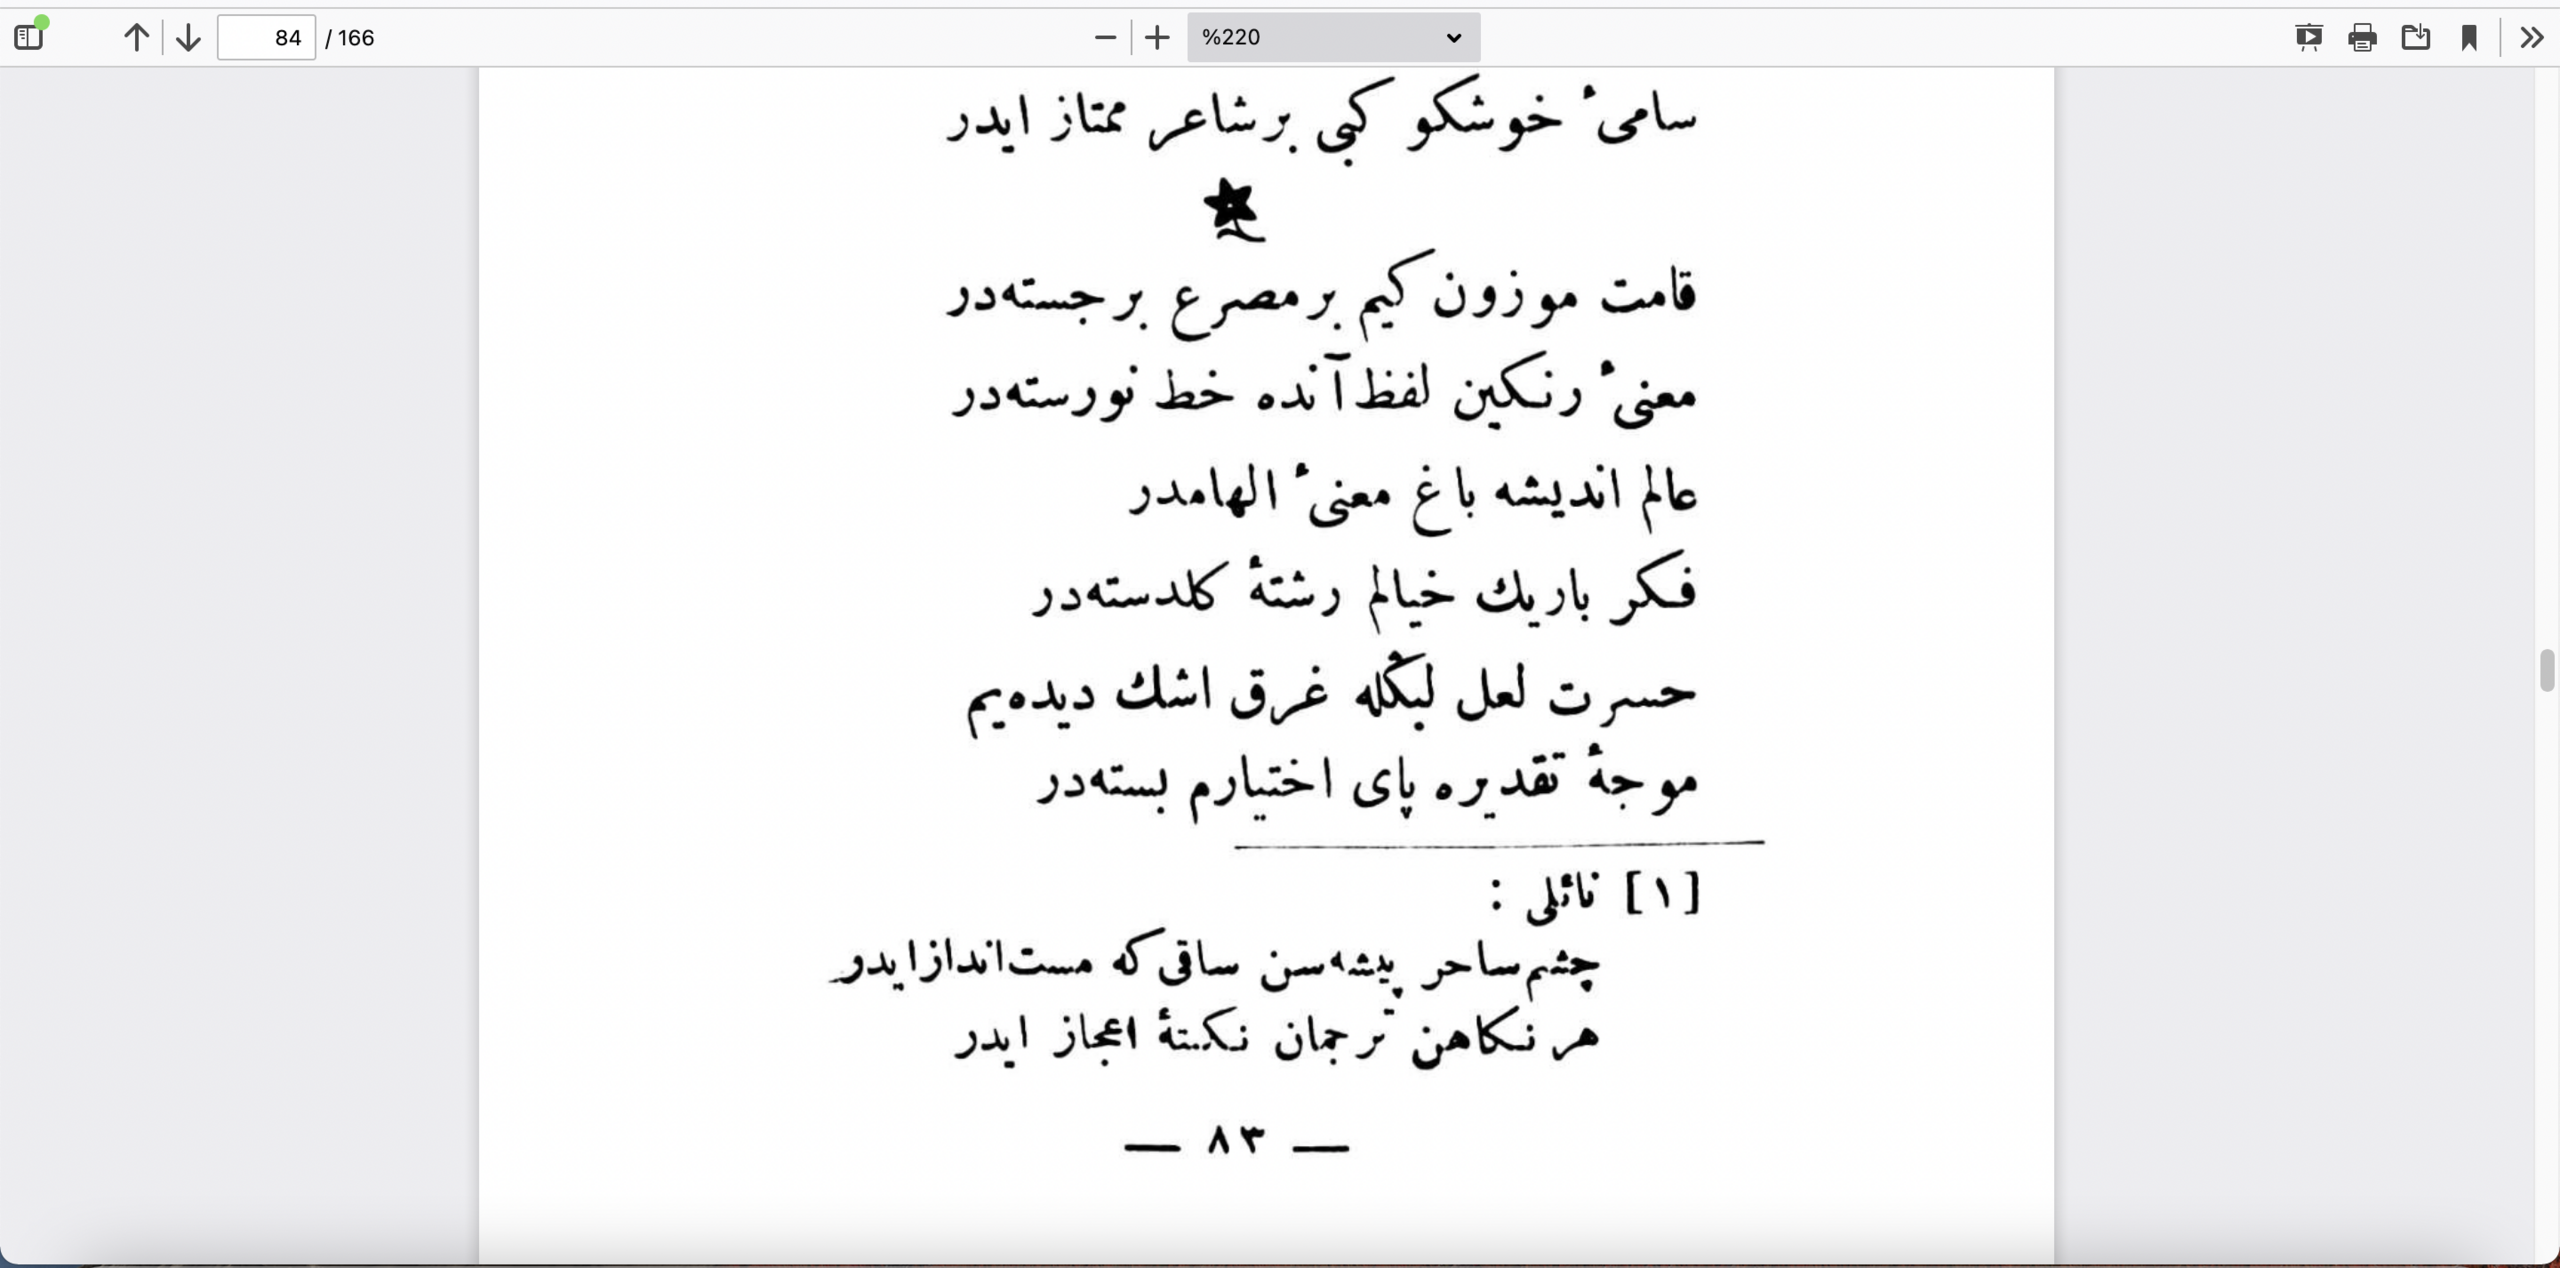 84 / 166
%220
سامیٔ خوشکو کبی برشاعر ممتاز ایدر
قامت موزون کیم برمصرع برجسته‌در
معنیٔ رنکین لفظ آنده خط نورسته‌در
عالم اندیشه باغ معنیٔ الهامدر
فکر باریك خیالم رشتهٔ کلدسته‌در
حسرت لعل لبڭله غرق اشك دیده‌یم
موجهٔ تقدیره پای اختیارم بسته‌در
[١] نائلی :
چشم ساحر پیشه‌سن ساقی که مست‌انداز ایدر
هر نکاهن ترجمان نکتهٔ اعجاز ایدر
— ٨٣ —